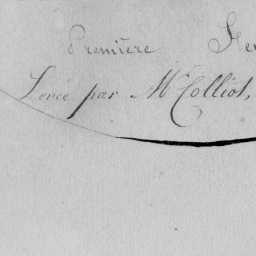 Première Fe
Levée par Mr Colliot,